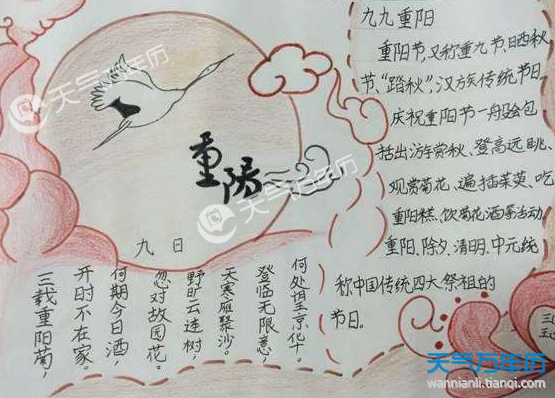 九九重阳
重阳节,又称重九节、晒秋
节、“踏秋”,汉族传统节日。
庆祝重阳节一般会包
括出游赏秋、登高远眺、
观赏菊花、遍插茱萸、吃
重阳糕、饮菊花酒等活动。
重阳、除夕、清明、中元统
称中国传统四大祭祖的
节日。
重陽
九日
三载重阳菊,
开时不在家。
何期今日酒,
忽对故园花。
野旷云连树,
天寒雁聚沙。
登临无限意,
何处望京华。
天气万年历
天气万年历
天气万年历
天气万年历
wannianli.tianqi.com